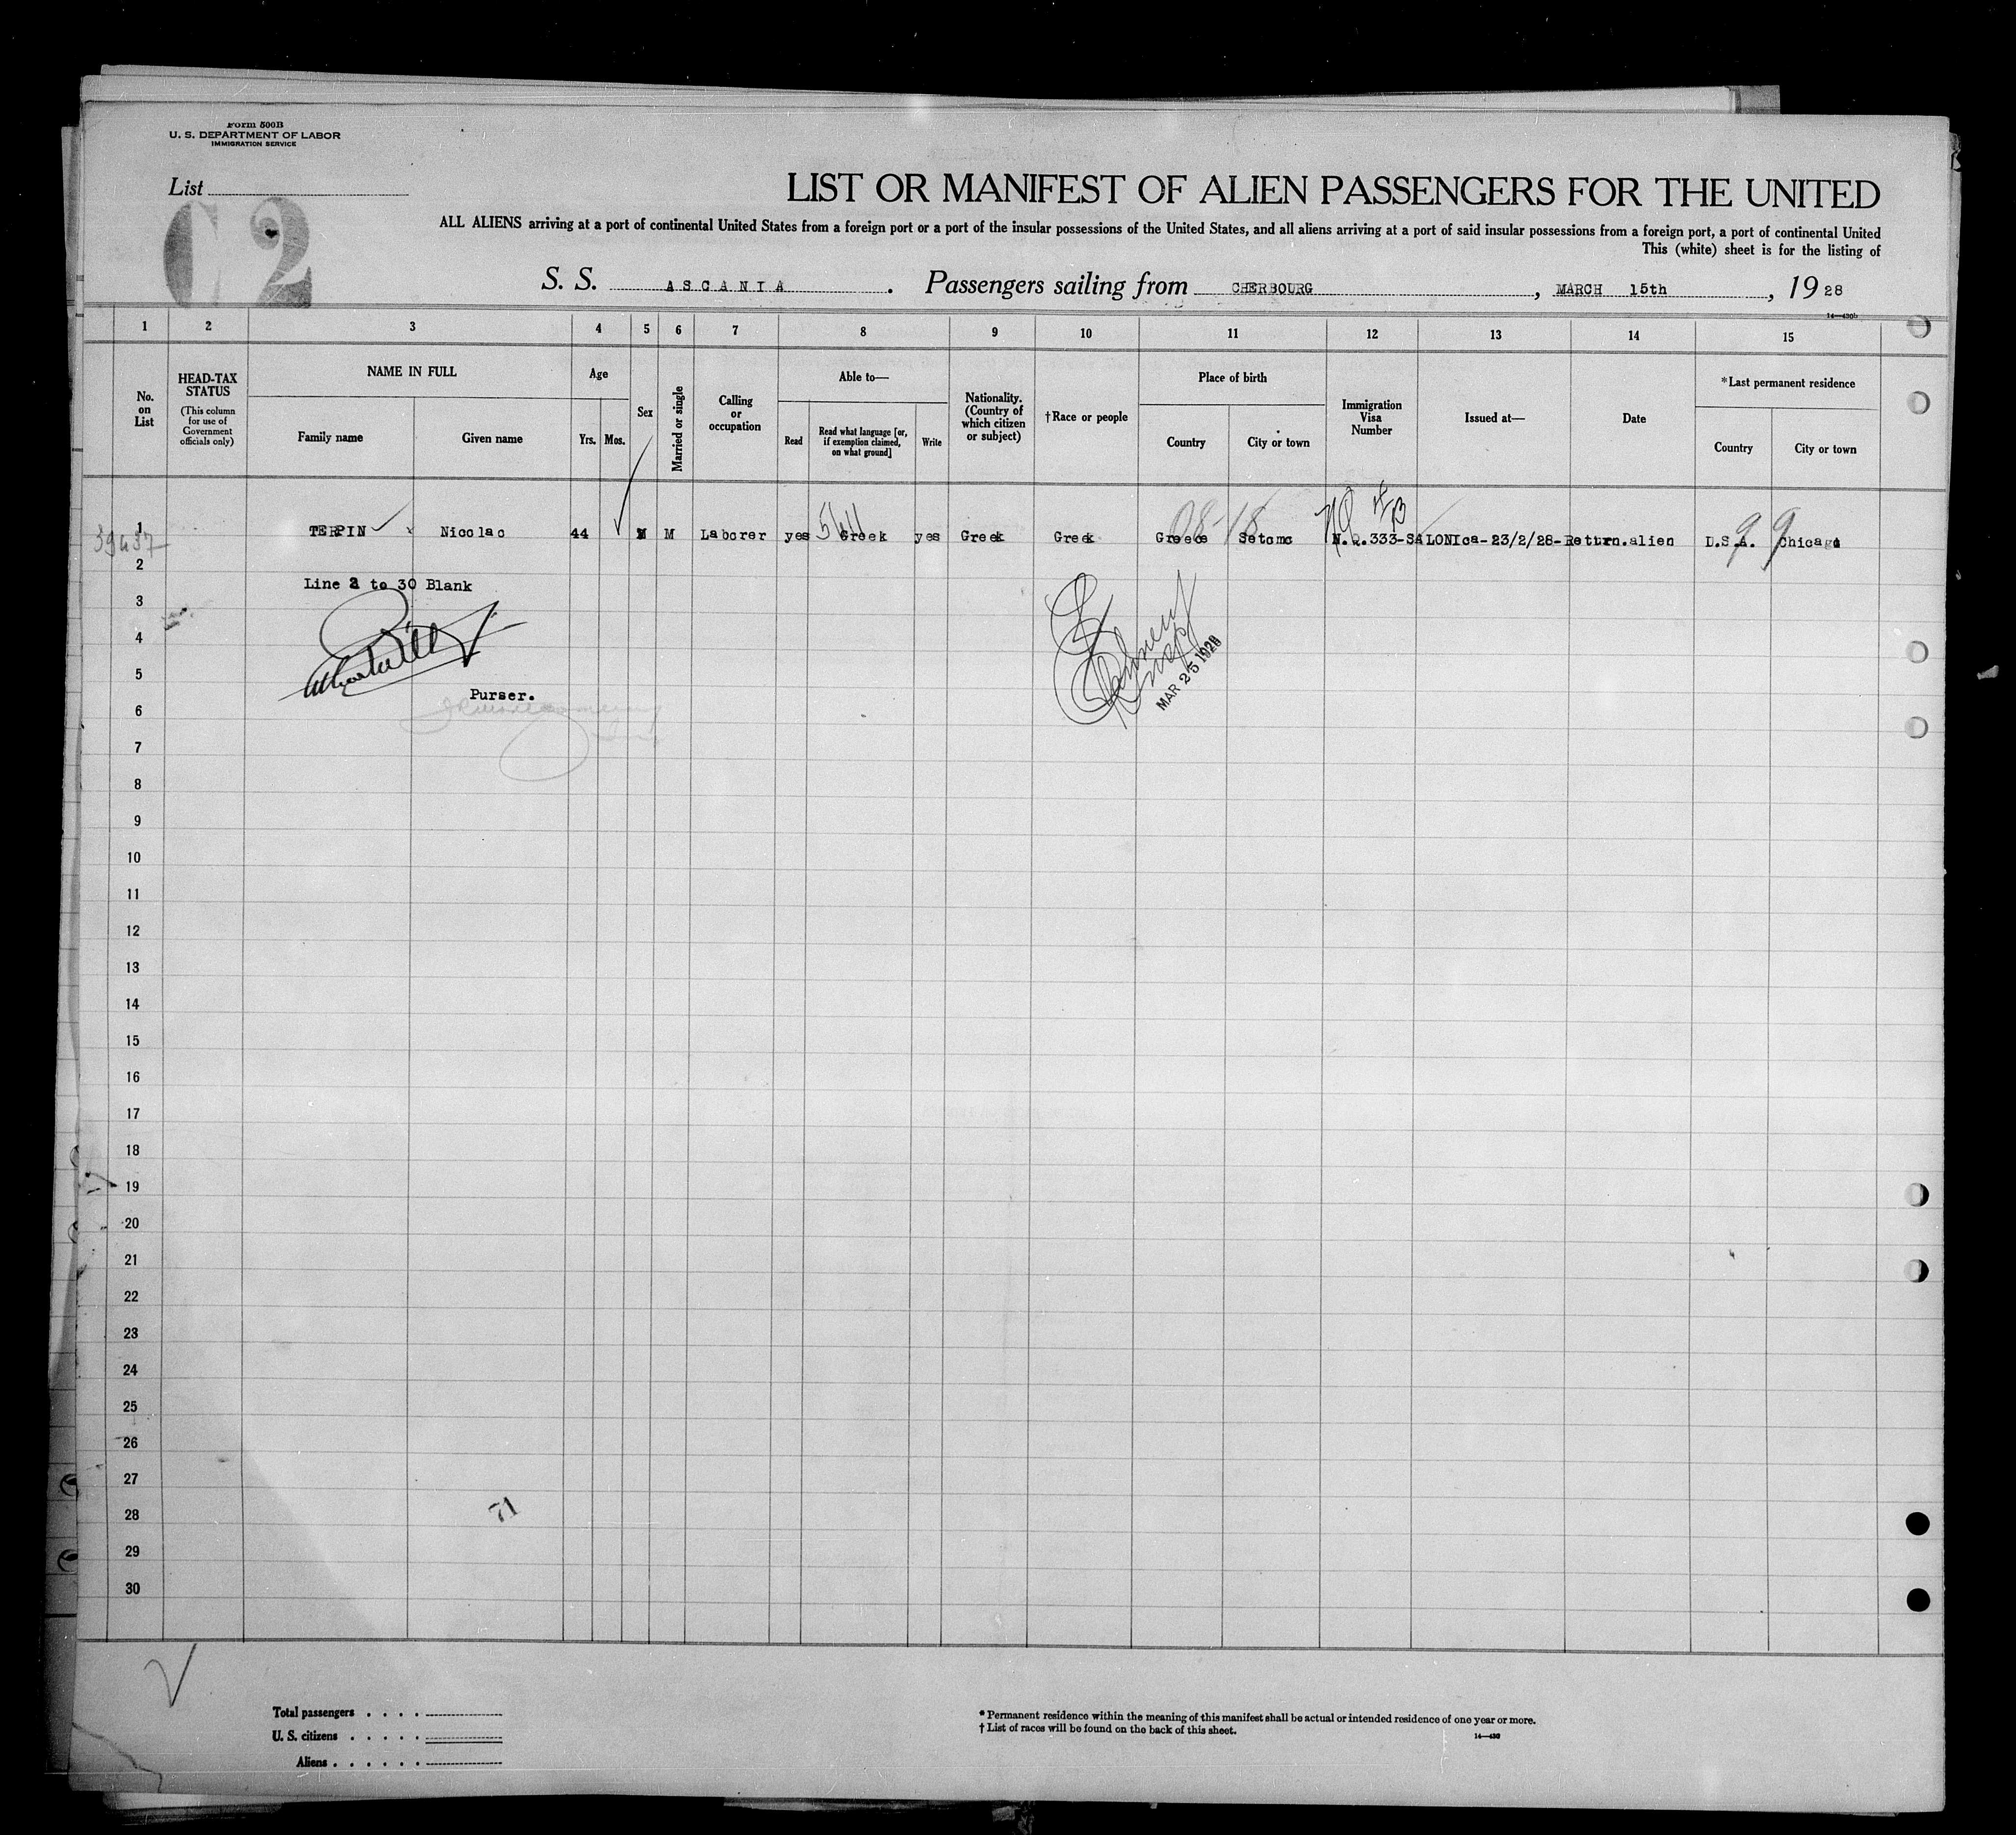 Form 500B
U. S. DEPARTMENT OF LABOR
IMMIGRATION SERVICE
List
C 2
LIST OR MANIFEST OF ALIEN PASSENGERS FOR THE UNITED
ALL ALIENS arriving at a port of continental United States from a foreign port or a port of the insular possessions of the United States, and all aliens arriving at a port of said insular possessions from a foreign port, a port of continental United
This (white) sheet is for the listing of
S. S. ASCANIA . Passengers sailing from CHERBOURG , MARCH 15th , 19 28
14—430b
1 2 3 4 5 6 7 8 9 10 11 12 13 14 15
No. on List
HEAD-TAX STATUS
(This column for use of Government officials only)
NAME IN FULL
Family name
Given name
Age
Yrs.
Mos.
Sex
Married or single
Calling or occupation
Able to—
Read
Read what language [or, if exemption claimed, on what ground]
Write
Nationality. (Country of which citizen or subject)
†Race or people
Place of birth
Country
City or town
Immigration Visa Number
Issued at—
Date
*Last permanent residence
Country
City or town
1 TERPIN Nicolao 44 M M Laborer yes Greek yes Greek Greek Greece Setomo N.Q.333-SALONIca-23/2/28-Return.alien U.S.A. Chicago
08-18
9 9
2
Line 2 to 30 Blank
3
4
5
Purser.
MAR 25 1928
6
7
8
9
10
11
12
13
14
15
16
17
18
19
20
21
22
23
24
25
26
27
28
71
29
30
Total passengers . . . .
U. S. citizens . . . . .
Aliens . . . . . .
* Permanent residence within the meaning of this manifest shall be actual or intended residence of one year or more.
† List of races will be found on the back of this sheet.
14—430